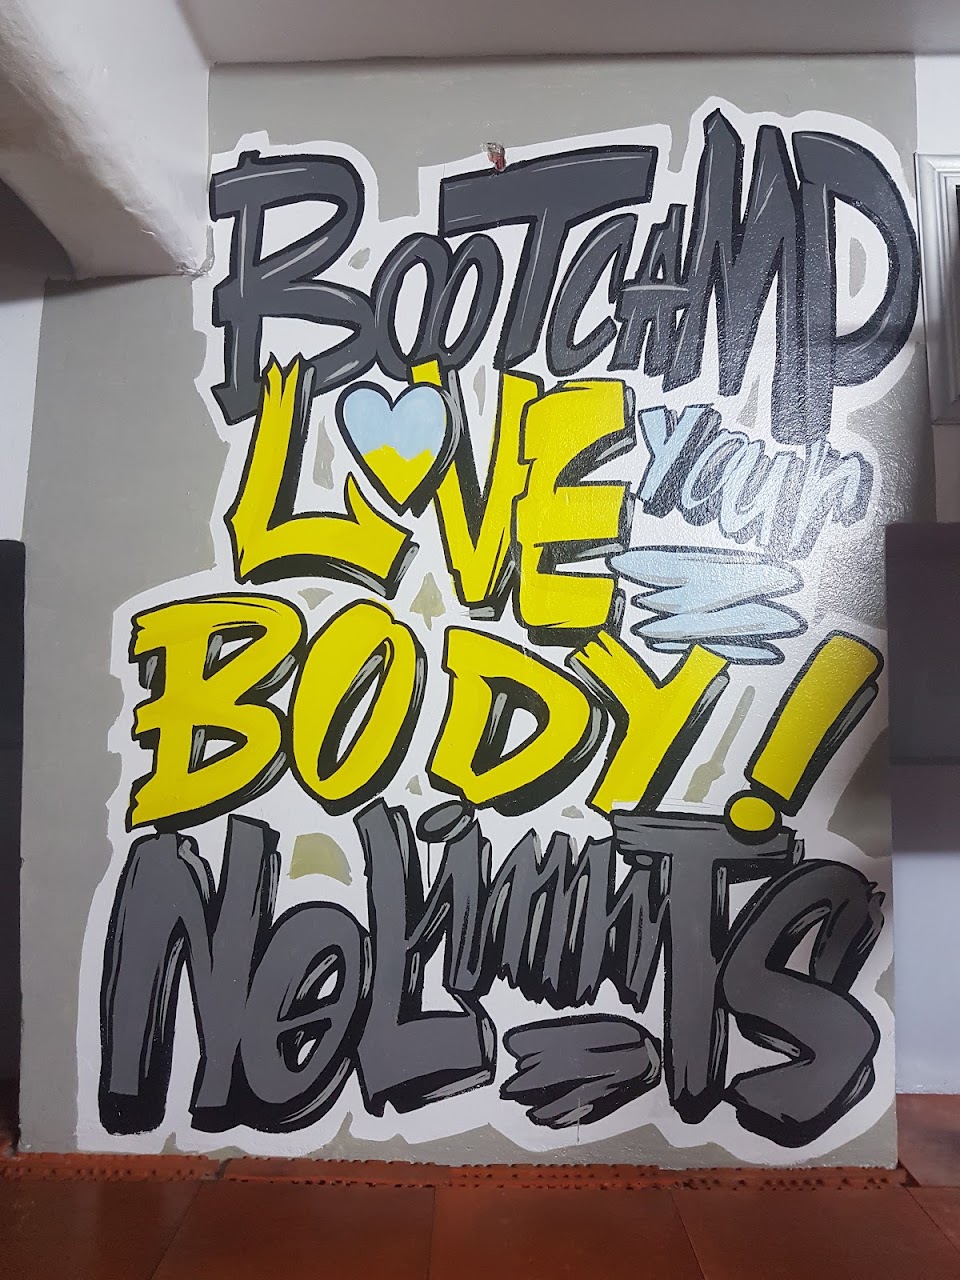 BOOTCAMP
LOVE your
BODY!
NO LimiTS